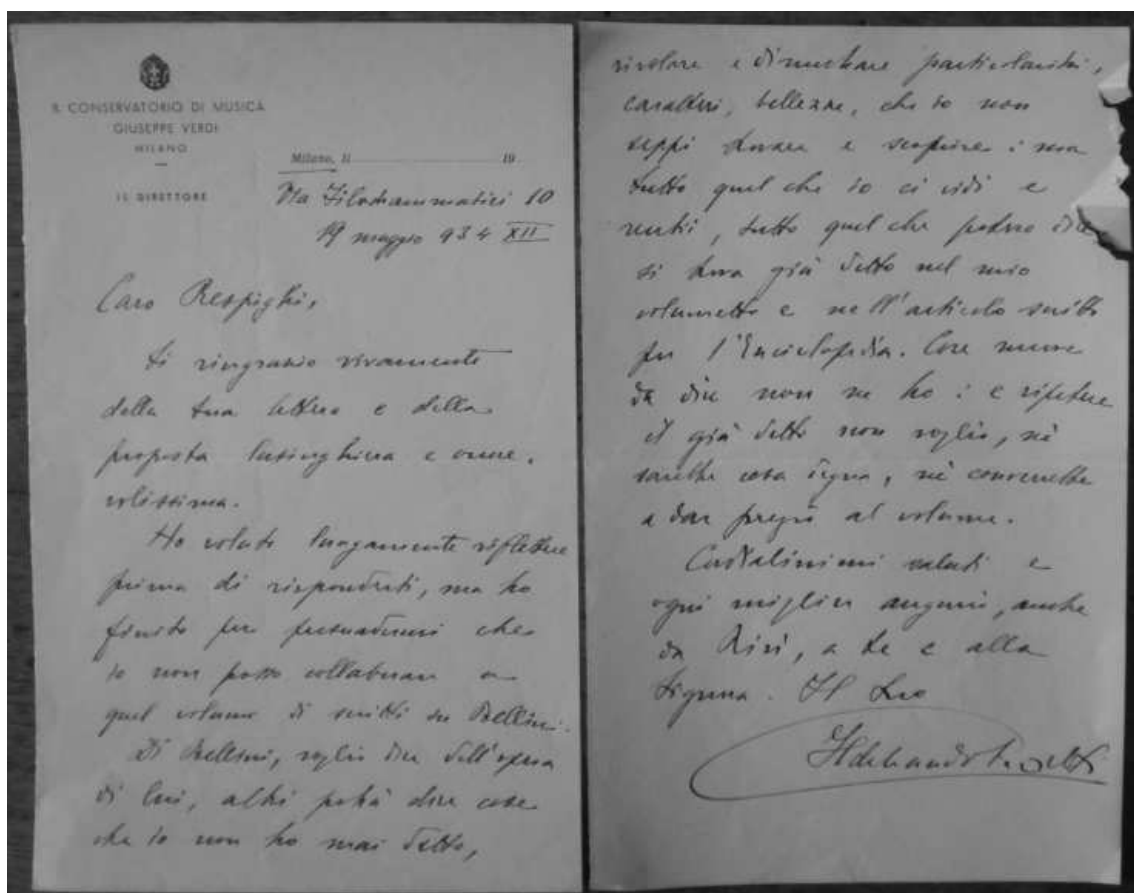 R. CONSERVATORIO DI MUSICA
GIUSEPPE VERDI
MILANO
IL DIRETTORE
Milano, li 19
Via Filodrammatici 10
19 maggio 934 XII
Caro Respighi,
ti ringrazio vivamente
della tua lettera e della
proposta lusinghiera e onore-
volissima.
Ho voluto lungamente riflettere
prima di risponderti, ma ho
finito per persuadermi che
io non posso collaborare a
quel volume di scritti su Bellini.
Di Bellini, voglio dire dell'opera
di lui, altri potrà dire cose
che io non ho mai detto,
rivelare e dimostrare particolarità,
caratteri, bellezze, che io non
seppi trovare e scoprire: ma
tutto quel che io ci vidi e
sentii, tutto quel che potevo dire
si trova già detto nel mio
volumetto e nell'articolo scritto
per l'Enciclopedia. Cose nuove
da dire non ne ho: e ripetere
il già detto non voglio, nè
sarebbe cosa degna, nè converrebbe
a dar pregio al volume.
Cordialissimi saluti e
ogni miglior augurio, anche
da Riri, a te e alla
Signora. Il tuo
Ildebrando Pizzetti